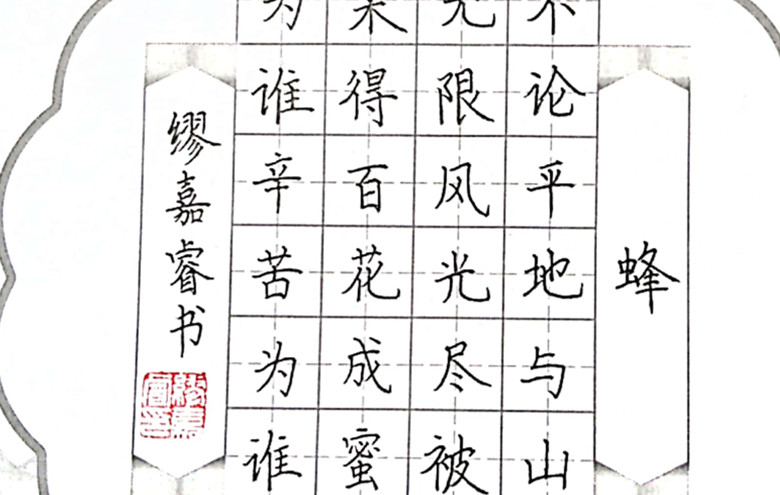 蜂
不论平地与山
无限风光尽被
采得百花成蜜
为谁辛苦为谁
缪嘉睿书